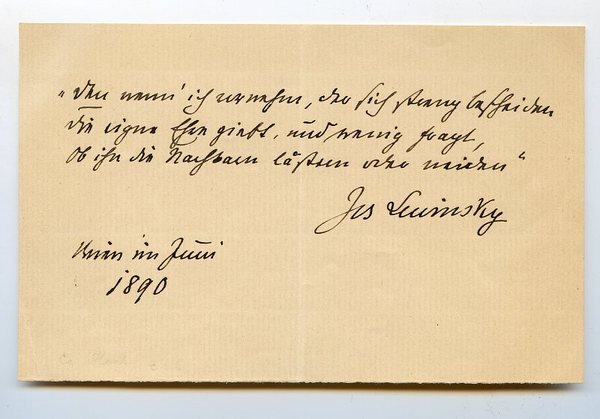 „Den nenn' ich vornehm, der sich streng bescheiden
die eigne Ehre giebt, und wenig fragt,
Ob ihn die Nachbarn lästern oder neiden“
Jos Lewinsky
Wien im Juni
1890